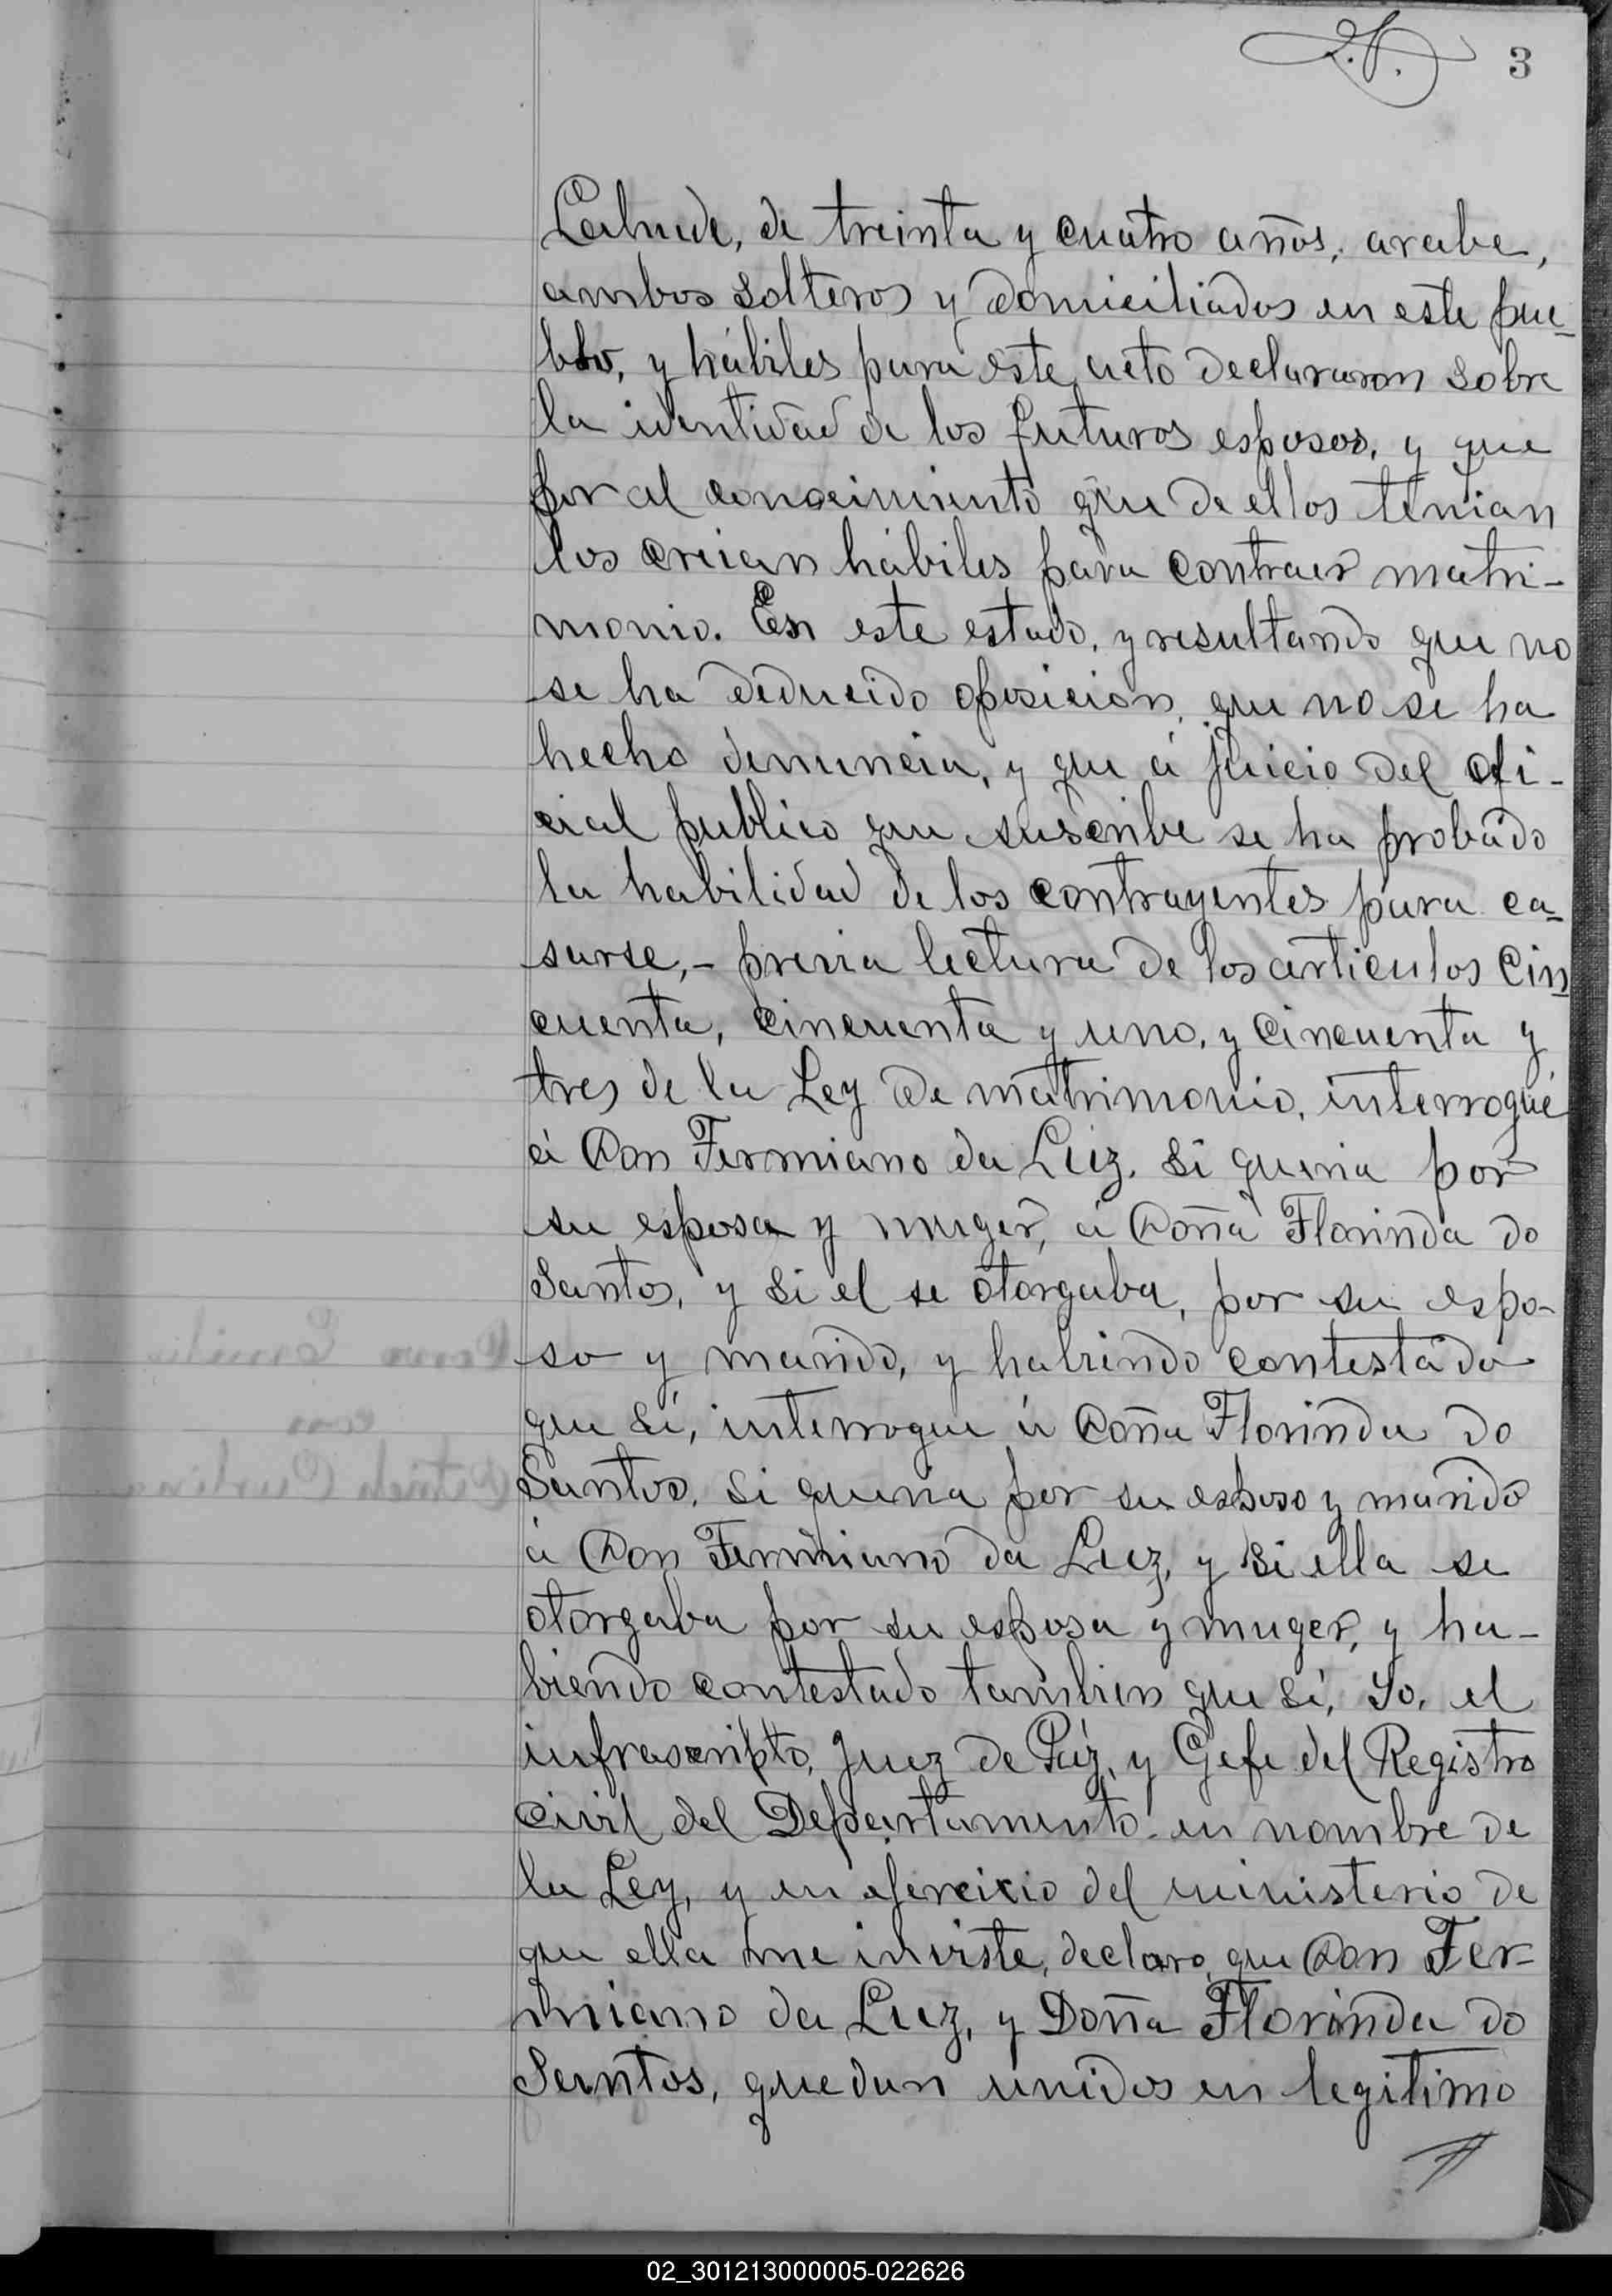 3
de treinta y cuatro años, arabe,
ambos solteros y domiciliados en este pue-
blo, y hábiles para este acto declararon sobre
la identidad de los futuros esposos, y que
por el conocimiento que de ellos tenian
los creian hábiles para contraer matri-
monio. En este estado, y resultando que no
se ha deducido oposicion, que no se ha
hecho denuncia, y que á juicio del ofi-
cial publico que suscribe se ha probado
la habilidad de los contrayentes para ca-
sarse,- previa lectura de los articulos cin-
cuenta, cincuenta y uno, y cincuenta y
tres de la Ley de matrimonio, interrogué
á Don Fermiano da Luz, si queria por
su esposa y muger, á Doña Florinda do
Santos, y si el se otorgaba, por su espo-
so y marido, y habiendo contestado
que sí, interrogue á Doña Florinda do
Santos, si queria por su esposo y marido
á Don Fermiano da Luz, y si ella se
otorgaba por su esposa y muger, y ha-
biendo contestado tambien que sí, Yo, el
infrascripto, Juez de Páz, y Gefe del Registro
Civil del Departamento en nombre de
la Ley, y en ejercicio del ministerio de
que ella me inviste, declaro, que Don Fer-
miano da Luz, y Doña Florinda do
Santos, quedan unidos en legitimo
02_301213000005-022626